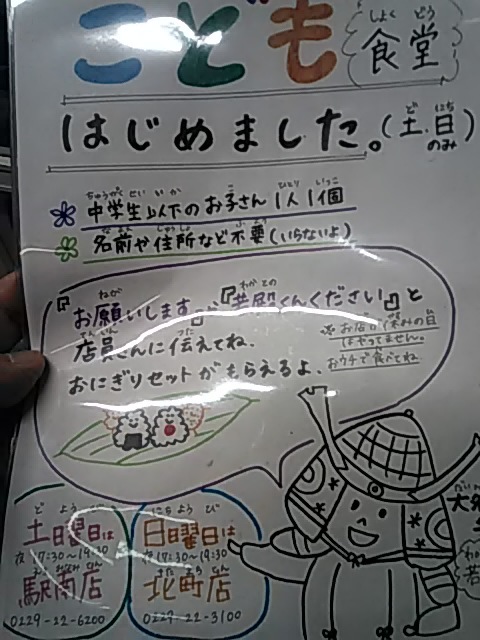 こども食堂
はじめました。(土・日のみ)
中学生以下のお子さん1人1個
名前や住所など不要(いらないよ)
『お願いします』『若殿くんください』と
店員さんに伝えてね。
おにぎりセットがもらえるよ。
※お店が休みの日
はやってません。
おウチで食べてね。
土曜日は
夜17:30〜19:30
駅南店
0229-22-6200
日曜日は
夜17:30〜19:30
北町店
0229-22-3100